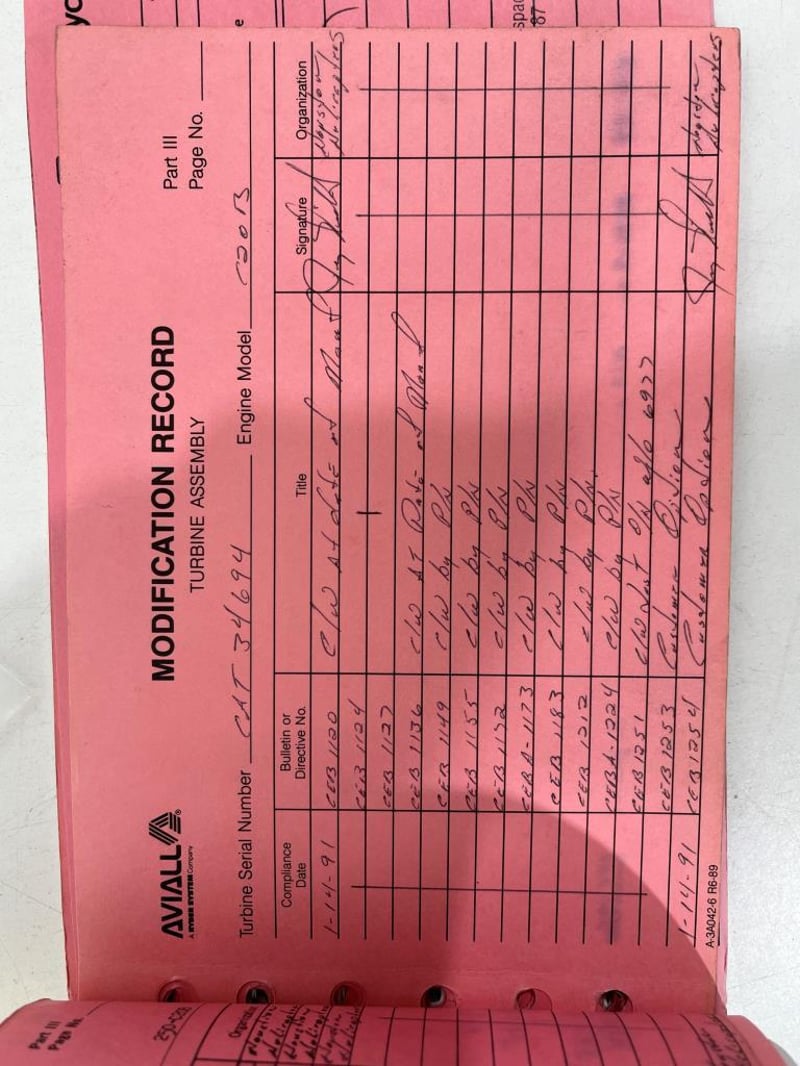 AVIALL®
A RYDER SYSTEM Company
MODIFICATION RECORD
TURBINE ASSEMBLY
Part III
Page No.
Turbine Serial Number CAT 34694 Engine Model C20B
Compliance Date Bulletin or Directive No. Title Signature Organization
1-14-91 CEB 1120 C/W At date of Manf Houston Helicopters
CEB 1124
CEB 1127
CEB 1136 C/W AT Date of Manf
CEB 1149 C/W by P/N
CEB 1155 C/W by P/N
CEB 1172 C/W by P/N
CEBA-1173 C/W by P/N
CEB 1183 C/W by P/N
CEB 1212 C/W by P/N.
CEBA-1224 C/W by P/N
CEB 1251 C/W Last O/H 6927
CEB 1253 Customer Option
1-14-91 CEB 1254 Customer Option Houston Helicopters
A-3A042-6 R6-89
Part III
Page No.
250-C20
Houston
Helicopters
Houston
Helicopters
Houston
Helicopters